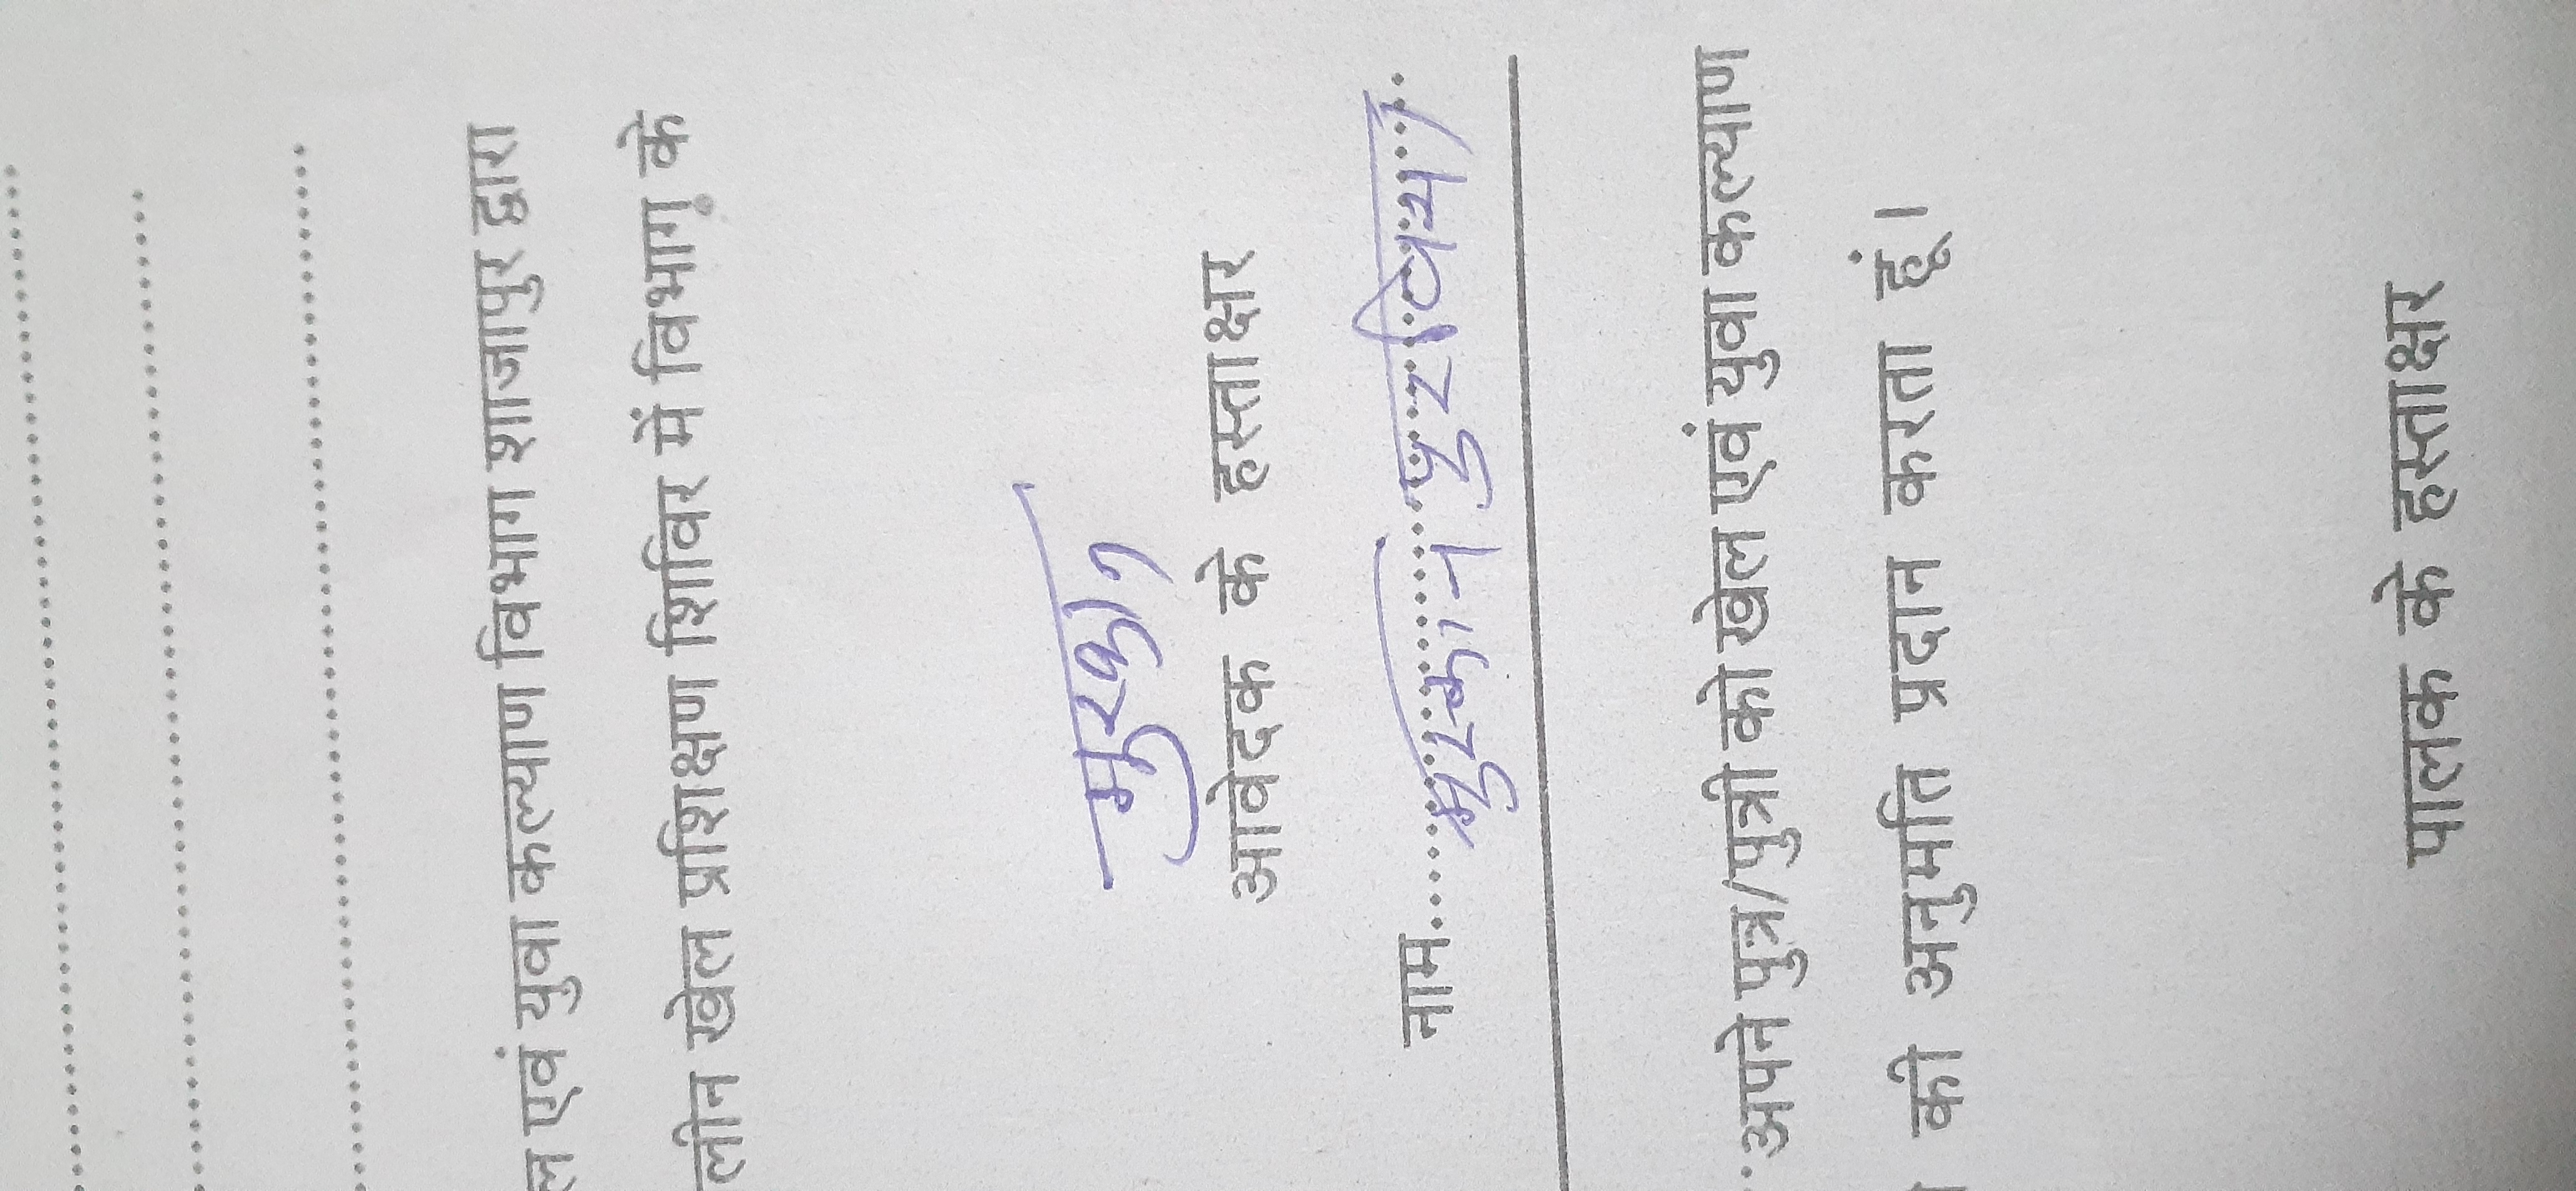 ल एवं युवा कल्याण विभाग शाजापुर द्वारा
लीन खेल प्रशिक्षण शिविर में विभाग के
मुस्कान
आवेदक के हस्ताक्षर
नाम.......मुस्कान
अपने पुत्र/पुत्री को खेल एवं युवा कल्याण
की अनुमति प्रदान करता हूं।
पालक के हस्ताक्षर